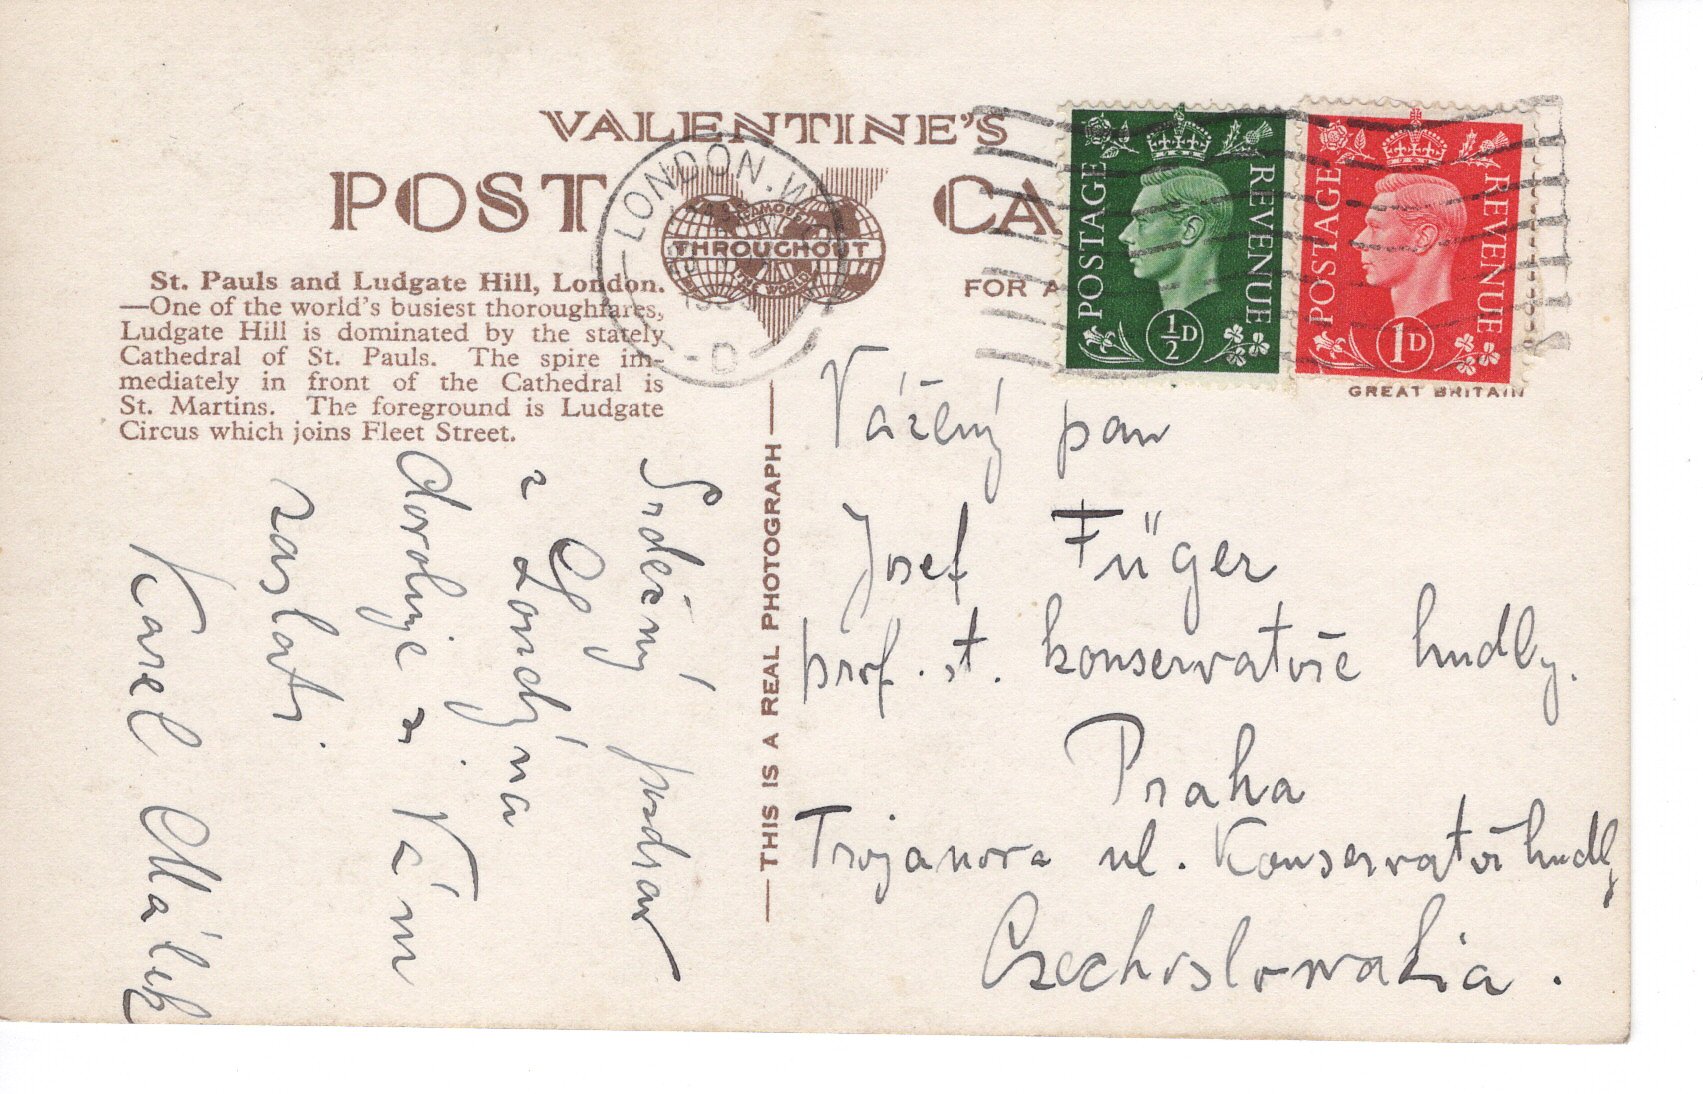 VALENTINE'S
POST CA
FAMOUS
THROUGHOUT
THE WORLD
LONDON. W.
- D -
FOR A
POSTAGE REVENUE
½D
POSTAGE REVENUE
1D
GREAT BRITAIN
St. Pauls and Ludgate Hill, London.
—One of the world's busiest thoroughfares,
Ludgate Hill is dominated by the stately
Cathedral of St. Pauls. The spire im-
mediately in front of the Cathedral is
St. Martins. The foreground is Ludgate
Circus which joins Fleet Street.
—THIS IS A REAL PHOTOGRAPH—
Srdečný pozdrav
z Londýna
dovoluje si Vám
zaslati
Karel Málek
Vážený pan
Josef Füger
prof. st. konservatoře hudby.
Praha
Trojanova ul. Konservatoř hudby
Czechoslovakia.